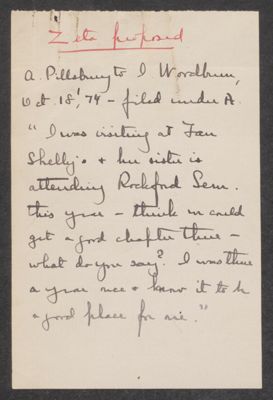 Zeta proposed
A. Pillsbury to I Woodburn,
Oct 18, '74 - filed under A.
"I was visiting at Fan
Shelly's & her sister is
attending Rockford Sem.
this year - think we could
get a good chapter there -
what do you say? I was there
a year once & know it to be
a good place for one."